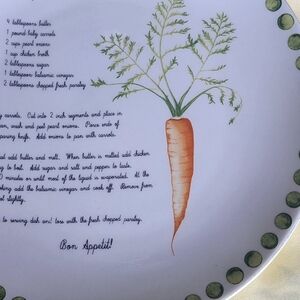 4 tablespoons butter
1 pound baby carrots
2 cups pearl onions
1 cup chicken broth
2 tablespoons sugar
1 tablespoon balsamic vinegar
2 tablespoons chopped fresh parsley
carrots. Cut into 2 inch segments and place in
wash and peel pearl onions. Pierce ends of
paring knife. Add onions to pan with carrots.
add butter and melt. When butter is melted add chicken
to boil. Add sugar and salt and pepper to taste.
minutes or until most of the liquid is evaporated. At the
add the balsamic vinegar and cook off. Remove from
slightly.
to serving dish and toss with the fresh chopped parsley.
Bon Appetit!